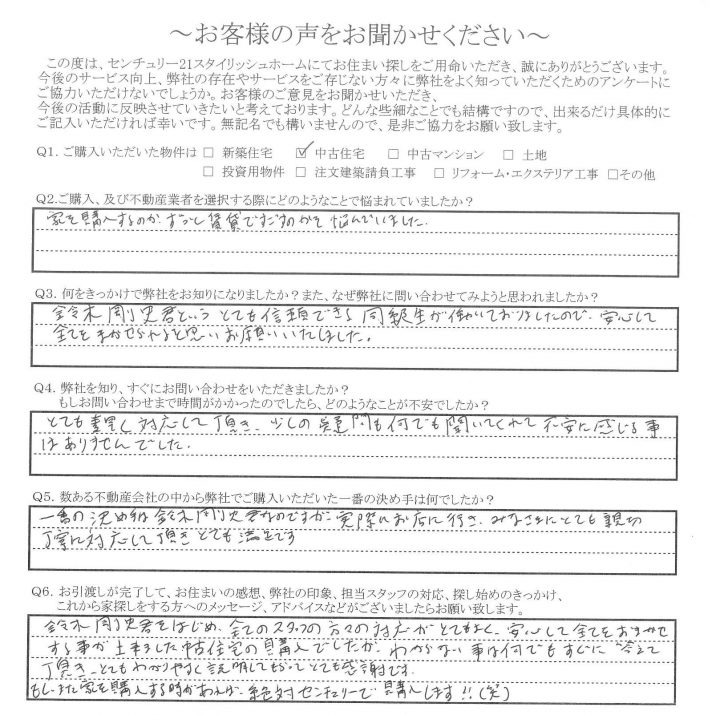 ～お客様の声をお聞かせください～
この度は、センチュリー21スタイリッシュホームにてお住まい探しをご用命いただき、誠にありがとうございます。
今後のサービス向上、弊社の存在やサービスをご存じない方々に弊社をよく知っていただくためのアンケートに
ご協力いただけないでしょうか。お客様のご意見をお聞かせいただき、
今後の活動に反映させていきたいと考えております。どんな些細なことでも結構ですので、出来るだけ具体的に
ご記入いただければ幸いです。無記名でも構いませんので、是非ご協力をお願い致します。
Q1. ご購入いただいた物件は □ 新築住宅 ☑ 中古住宅 □ 中古マンション □ 土地
□ 投資用物件 □ 注文建築請負工事 □ リフォーム・エクステリア工事 □その他
Q2.ご購入、及び不動産業者を選択する際にどのようなことで悩まれていましたか？
家を購入するのか、ずっと賃貸ですごすのかを悩んでいました.
Q3. 何をきっかけで弊社をお知りになりましたか？また、なぜ弊社に問い合わせてみようと思われましたか？
鈴木剛史君という とても信頼できる 同級生が働いておりましたので、安心して
全てをまかせられると思いお願いいたしました。
Q4. 弊社を知り、すぐにお問い合わせをいただきましたか？
もしお問い合わせまで時間がかかったのでしたら、どのようなことが不安でしたか？
とても素早く対応して頂き、少しの疑問も何でも聞いてくれて不安に感じる事
はありませんでした.
Q5. 数ある不動産会社の中から弊社でご購入いただいた一番の決め手は何でしたか？
一番の決め手は鈴木剛史君なのですが、実際にお店に行き、みなさまにとても親切
丁寧に対応して頂きとても満足です
Q6. お引渡しが完了して、お住まいの感想、弊社の印象、担当スタッフの対応、探し始めのきっかけ、
これから家探しをする方へのメッセージ、アドバイスなどがございましたらお願い致します。
鈴木剛史君をはじめ、全てのスタッフの方々の対応がとてもよく、安心して全てをおまかせ
する事が出来ました中古住宅の購入でしたが、わからない事は何でもすぐに答えて
頂き、とてもわかりやすく説明してもらってとても感謝です.
もし、また家を購入する時があれば、絶対センチュリーで購入します!!(笑)